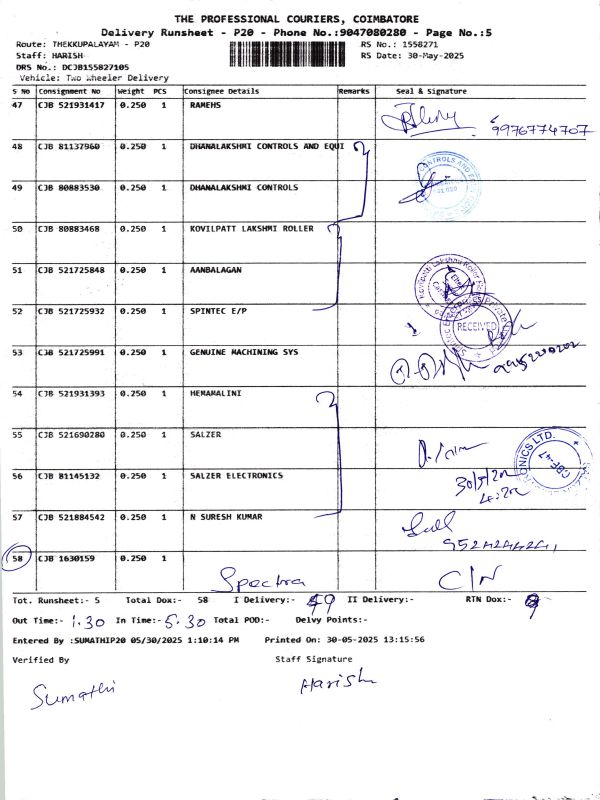 THE PROFESSIONAL COURIERS, COIMBATORE
Delivery Runsheet - P20 - Phone No.:9047080280 - Page No.:5
Route: THEKKUPALAYAM - P20 RS No.: 1558271
Staff: HARISH RS Date: 30-May-2025
DRS No.: DCJB155827105
Vehicle: Two Wheeler Delivery
S No Consignment No Weight PCS Consignee Details Remarks Seal & Signature
47 CJB 521931417 0.250 1 RAMEHS
9976774707
48 CJB 81137960 0.250 1 DHANALAKSHMI CONTROLS AND EQUI
CONTROLS AND
49 CJB 80883530 0.250 1 DHANALAKSHMI CONTROLS
50 CJB 80883468 0.250 1 KOVILPATT LAKSHMI ROLLER
51 CJB 521725848 0.250 1 AANBALAGAN
Kovilpatti Lakshmi Roller
52 CJB 521725932 0.250 1 SPINTEC E/P
RECEIVED
53 CJB 521725991 0.250 1 GENUINE MACHINING SYS
54 CJB 521931393 0.250 1 HEMAMALINI
55 CJB 521690280 0.250 1 SALZER
ONICS LTD.
CBE-47
56 CJB 81145132 0.250 1 SALZER ELECTRONICS
57 CJB 521884542 0.250 1 N SURESH KUMAR
58 CJB 1630159 0.250 1
Spectra C/N
Tot. Runsheet:- 5 Total Dox:- 58 I Delivery:- 49 II Delivery:- RTN Dox:- 9
Out Time:- 1.30 In Time:- 5.30 Total POD:- Delvy Points:-
Entered By :SUMATHIP20 05/30/2025 1:10:14 PM Printed On: 30-05-2025 13:15:56
Verified By Staff Signature
Sumathi Harish